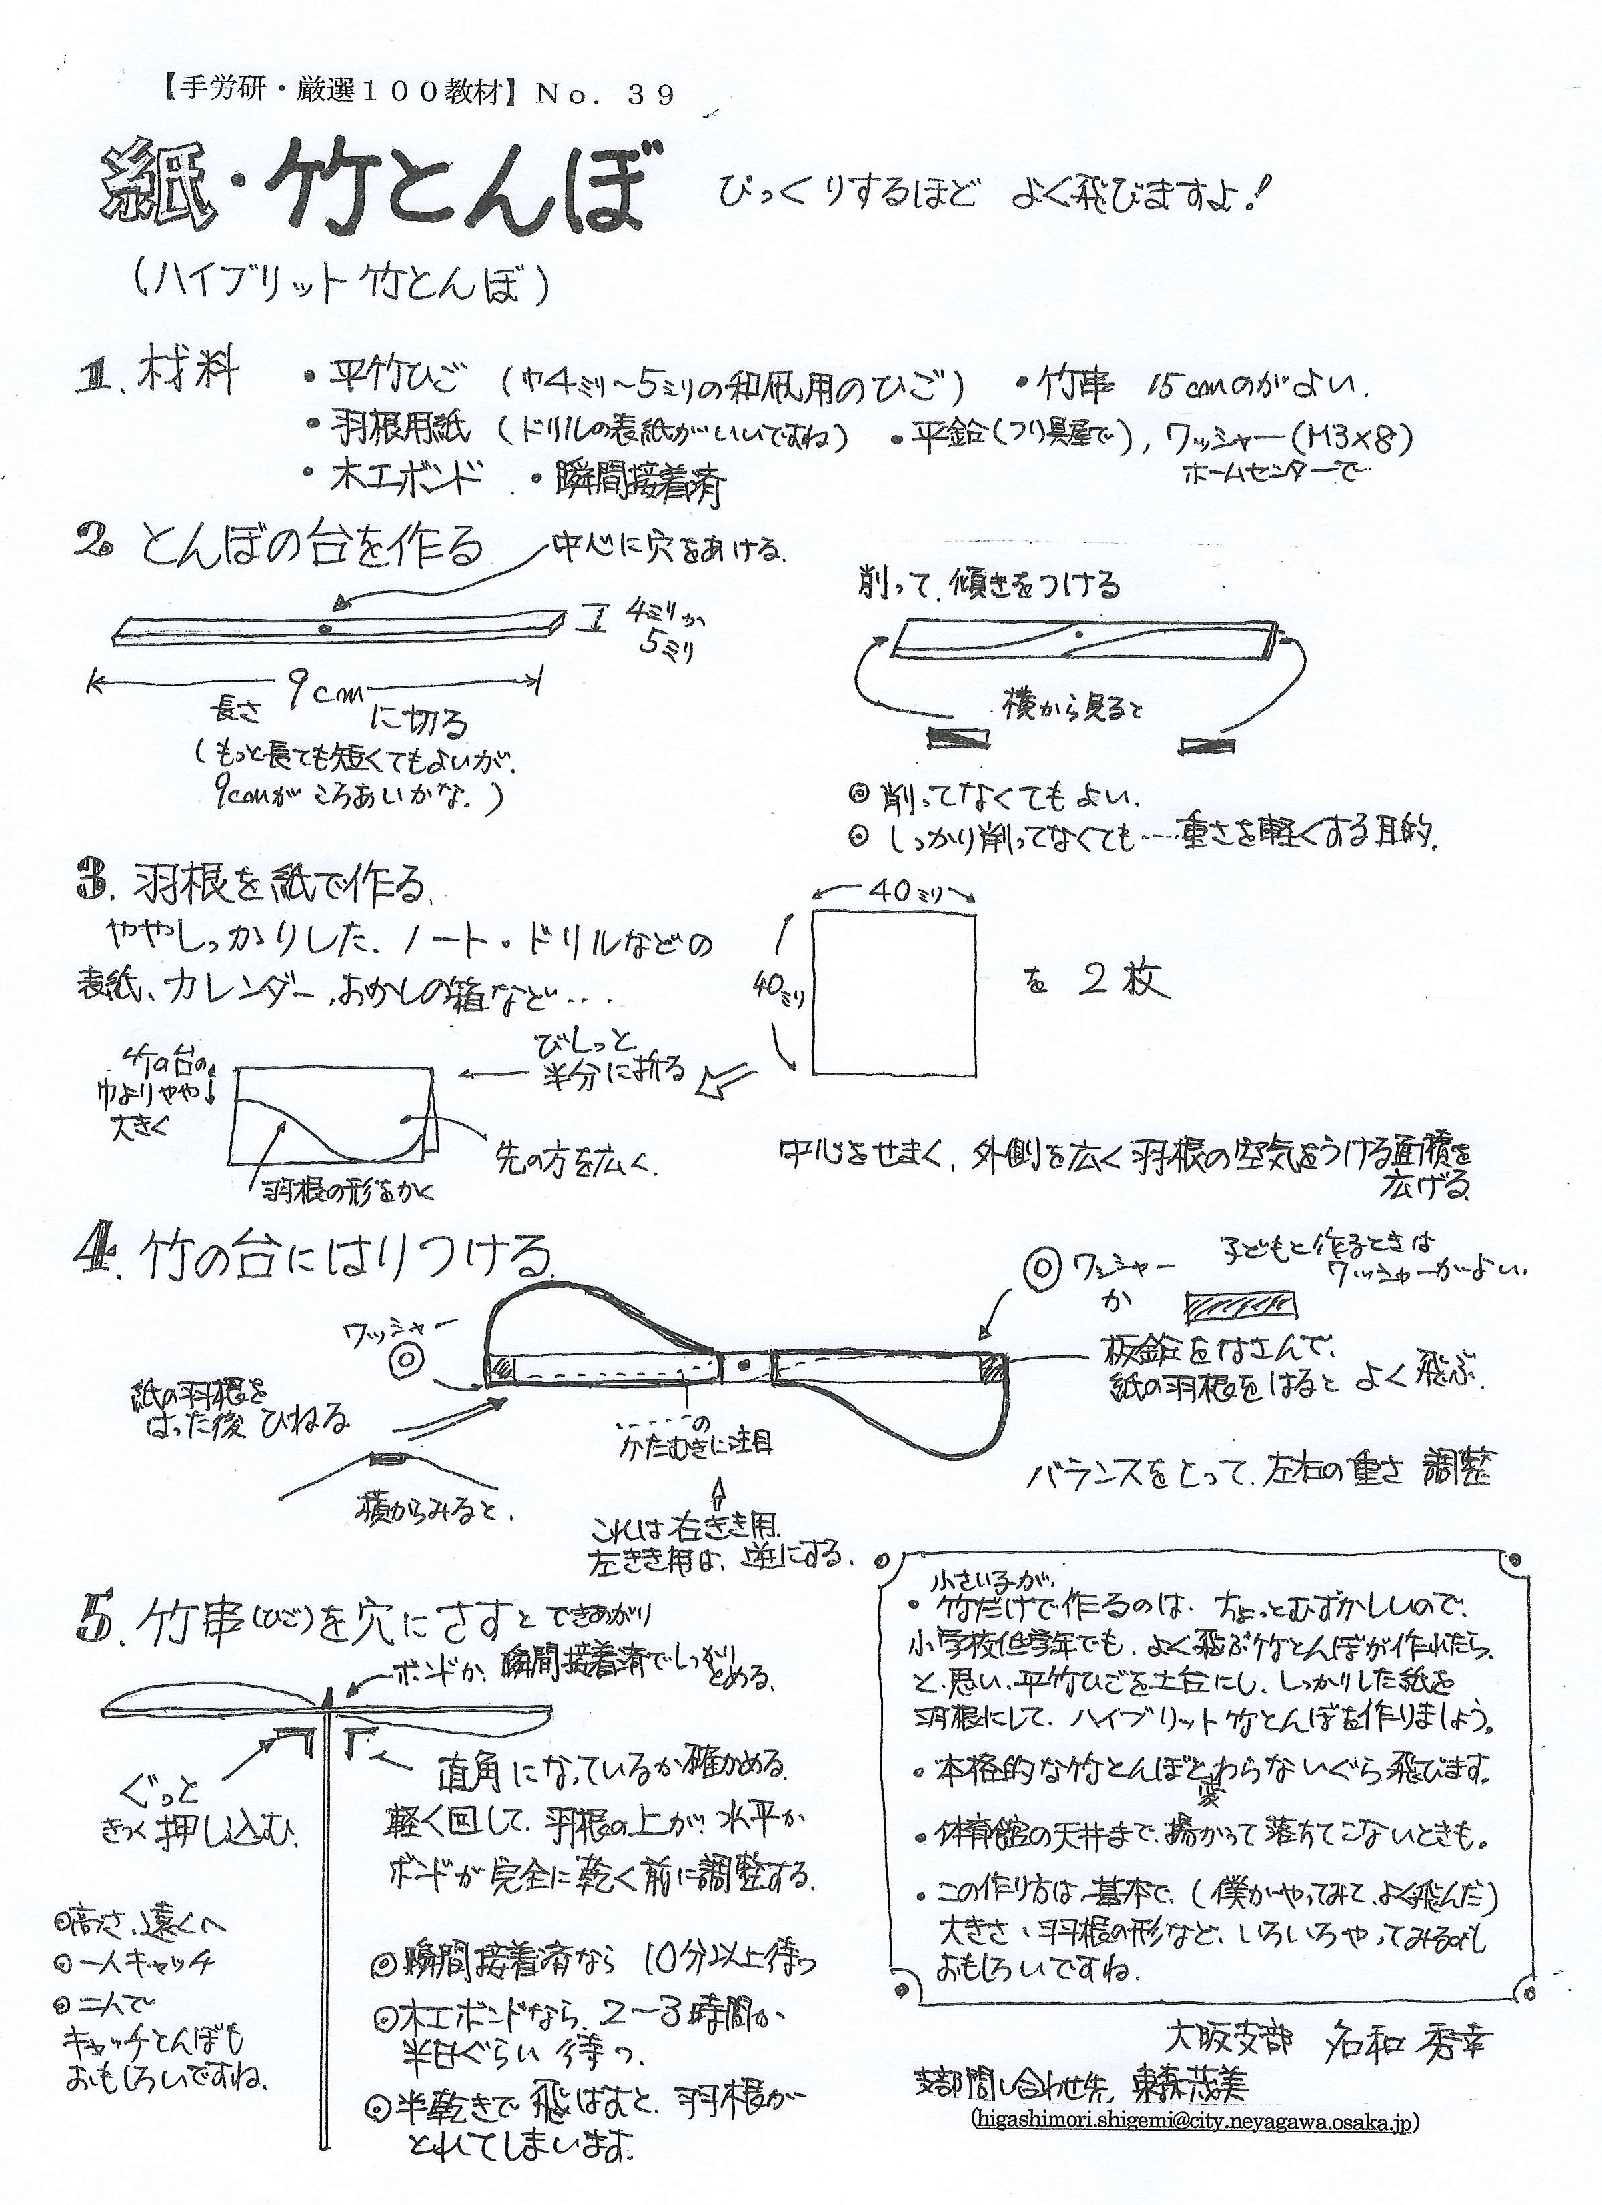 【手労研・厳選１００教材】Ｎｏ．３９
紙・竹とんぼ びっくりするほど よく飛びますよ！
（ハイブリット竹とんぼ）
1. 材料 ・平竹ひご （巾4ミリ〜5ミリの和凧用のひご） ・竹串 15cmのがよい.
・羽根用紙 （ドリルの表紙がいいですね） ・平鉛（つり具屋で）, ワッシャー（M3×8）
ホームセンターで
・木工ボンド ・瞬間接着済
2. とんぼの台を作る
中心に穴をあける.
4ミリか
5ミリ
9cm
長さ に切る
（もっと長ても短くてもよいが.
9cmが ころあいかな.）
削って.傾きをつける
横から見ると
◎ 削ってなくてもよい.
◎ しっかり削ってなくても……重さを軽くする目的.
3. 羽根を紙で作る.
ややしっかりした. ノート・ドリルなどの
表紙、カレンダー,おかしの箱など…
40ミリ
40ミリ
を 2枚
びしっと
半分に折る
竹の台の
巾よりやや
大きく
羽根の形をかく
先の方を広く.
中心をせまく, 外側を広く 羽根の空気をうける面積を
広げる.
4. 竹の台にはりつける.
ワッシャー
紙の羽根を
はった後 ひねる
横からみると.
………の
かたむきに注目
これは右きき用.
左きき用は、逆にする.
ワッシャー
か
子どもと作るときは
ワッシャーがよい.
板鉛をはさんで、
紙の羽根をはると よく飛ぶ.
バランスをとって.左右の重さ 調整
5. 竹串（ひご）を穴にさすと できあがり
ボンドか、瞬間接着済でしっかり
とめる.
ぐっと
きつく押し込む.
直角になっているか確かめる.
軽く回して. 羽根の上が 水平か
ボンドが完全に乾く前に調整する.
◎高さ、遠くへ
◎一人キャッチ
◎二人で
キャッチとんぼも
おもしろいですね.
◎瞬間接着済なら 10分以上待つ
◎木工ボンドなら. 2−3時間か、
半日ぐらい 待つ.
◎半乾きで 飛ばすと. 羽根が
とれてしまいます.
小さい子が.
・竹だけで作るのは. ちょっとむずかしいので.
小学校低学年でも. よく飛ぶ竹とんぼが作れたら.
と.思い. 平竹ひごを土台にし. しっかりした紙を
羽根にして. ハイブリット竹とんぼを作りましょう。
・本格的な竹とんぼと変わらないぐら飛びます。
・体育館の天井まで、揚がって 落ちてこないときも。
・この作り方は、基本で.（僕がやってみて.よく飛んだ）
大きさ、羽根の形など、いろいろやってみるのも
おもしろいですね.
大阪支部 名和 秀幸
支部問い合わせ先, 東森茂美
(higashimori.shigemi@city.neyagawa.osaka.jp)